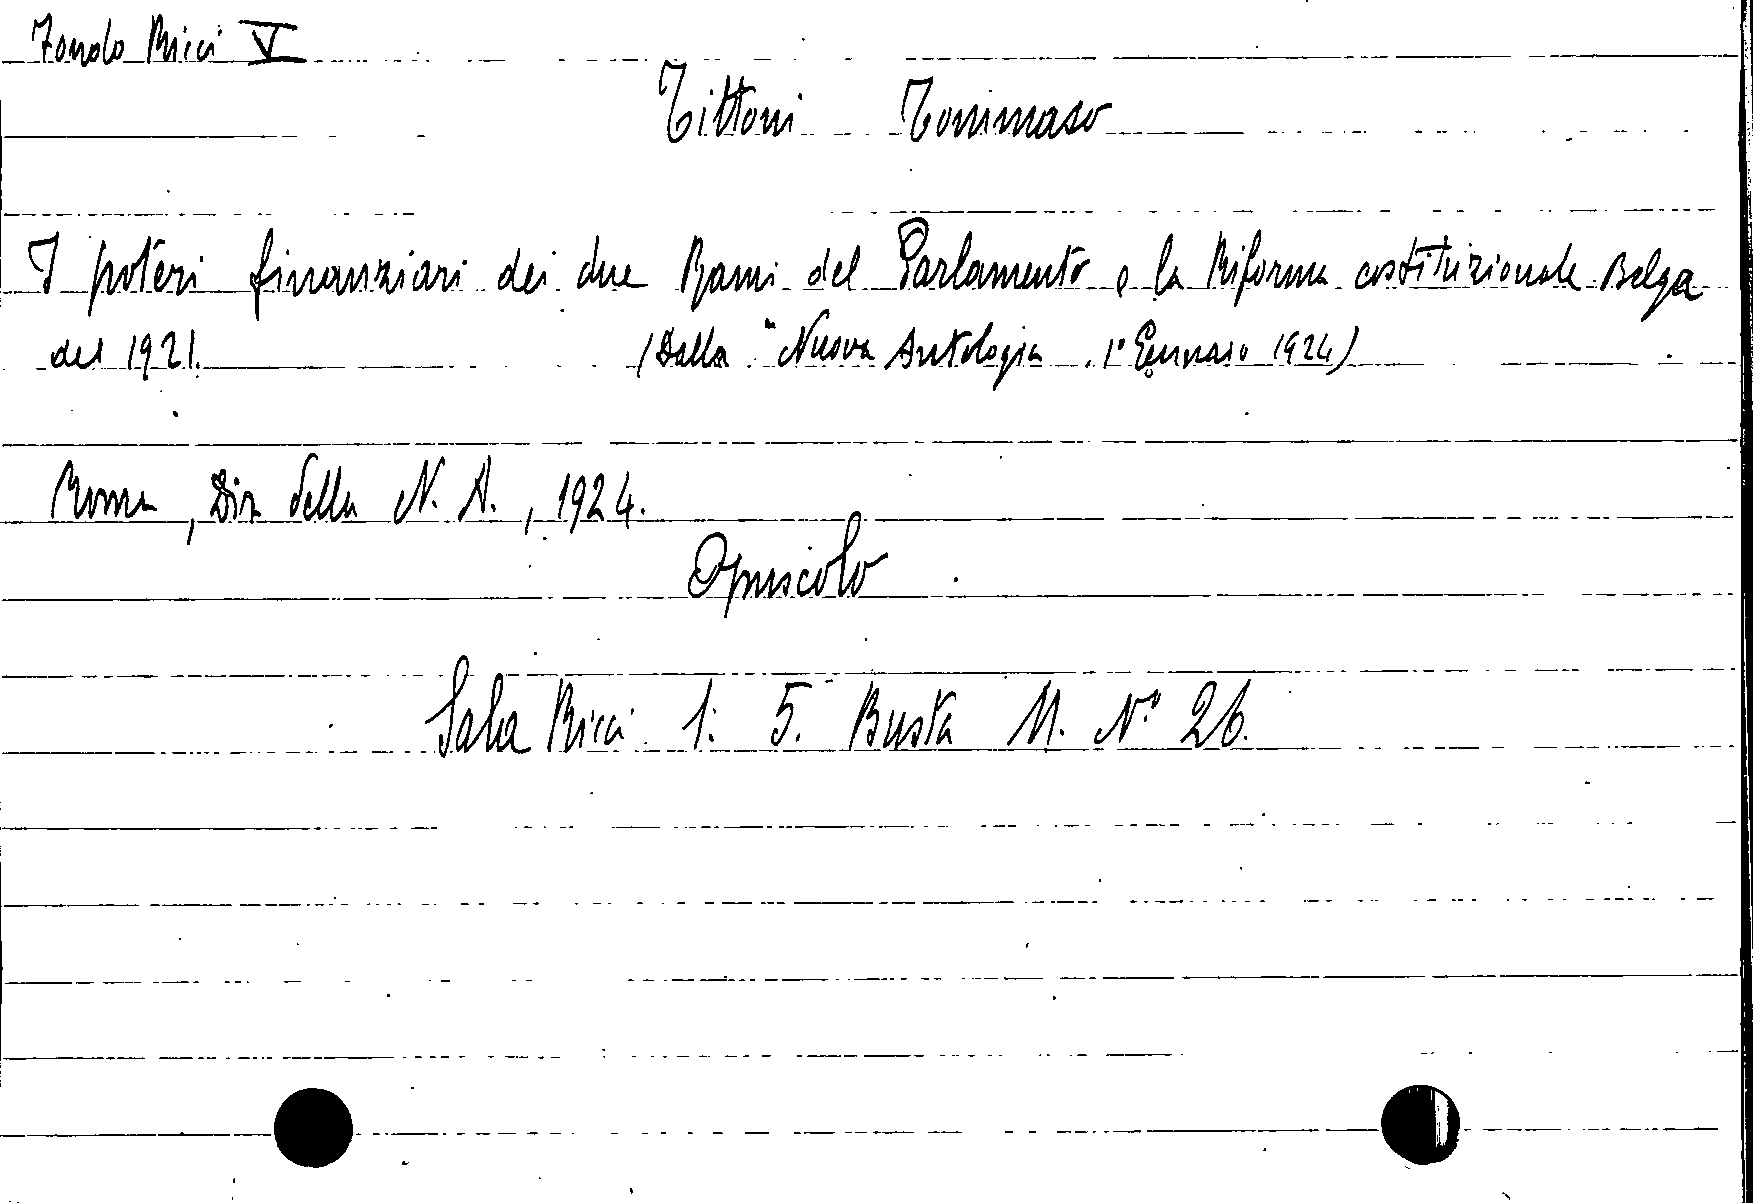 Fondo Ricci V
Tittoni Tommaso
I poteri finanziari dei due Rami del Parlamento e la Riforma costituzionale Belga
del 1921. (Dalla "Nuova Antologia. 1° Gennaio 1924)
Roma, Dir della N. A., 1924.
Opuscolo
Sala Ricci 1: 5. Busta M. N.° 26.